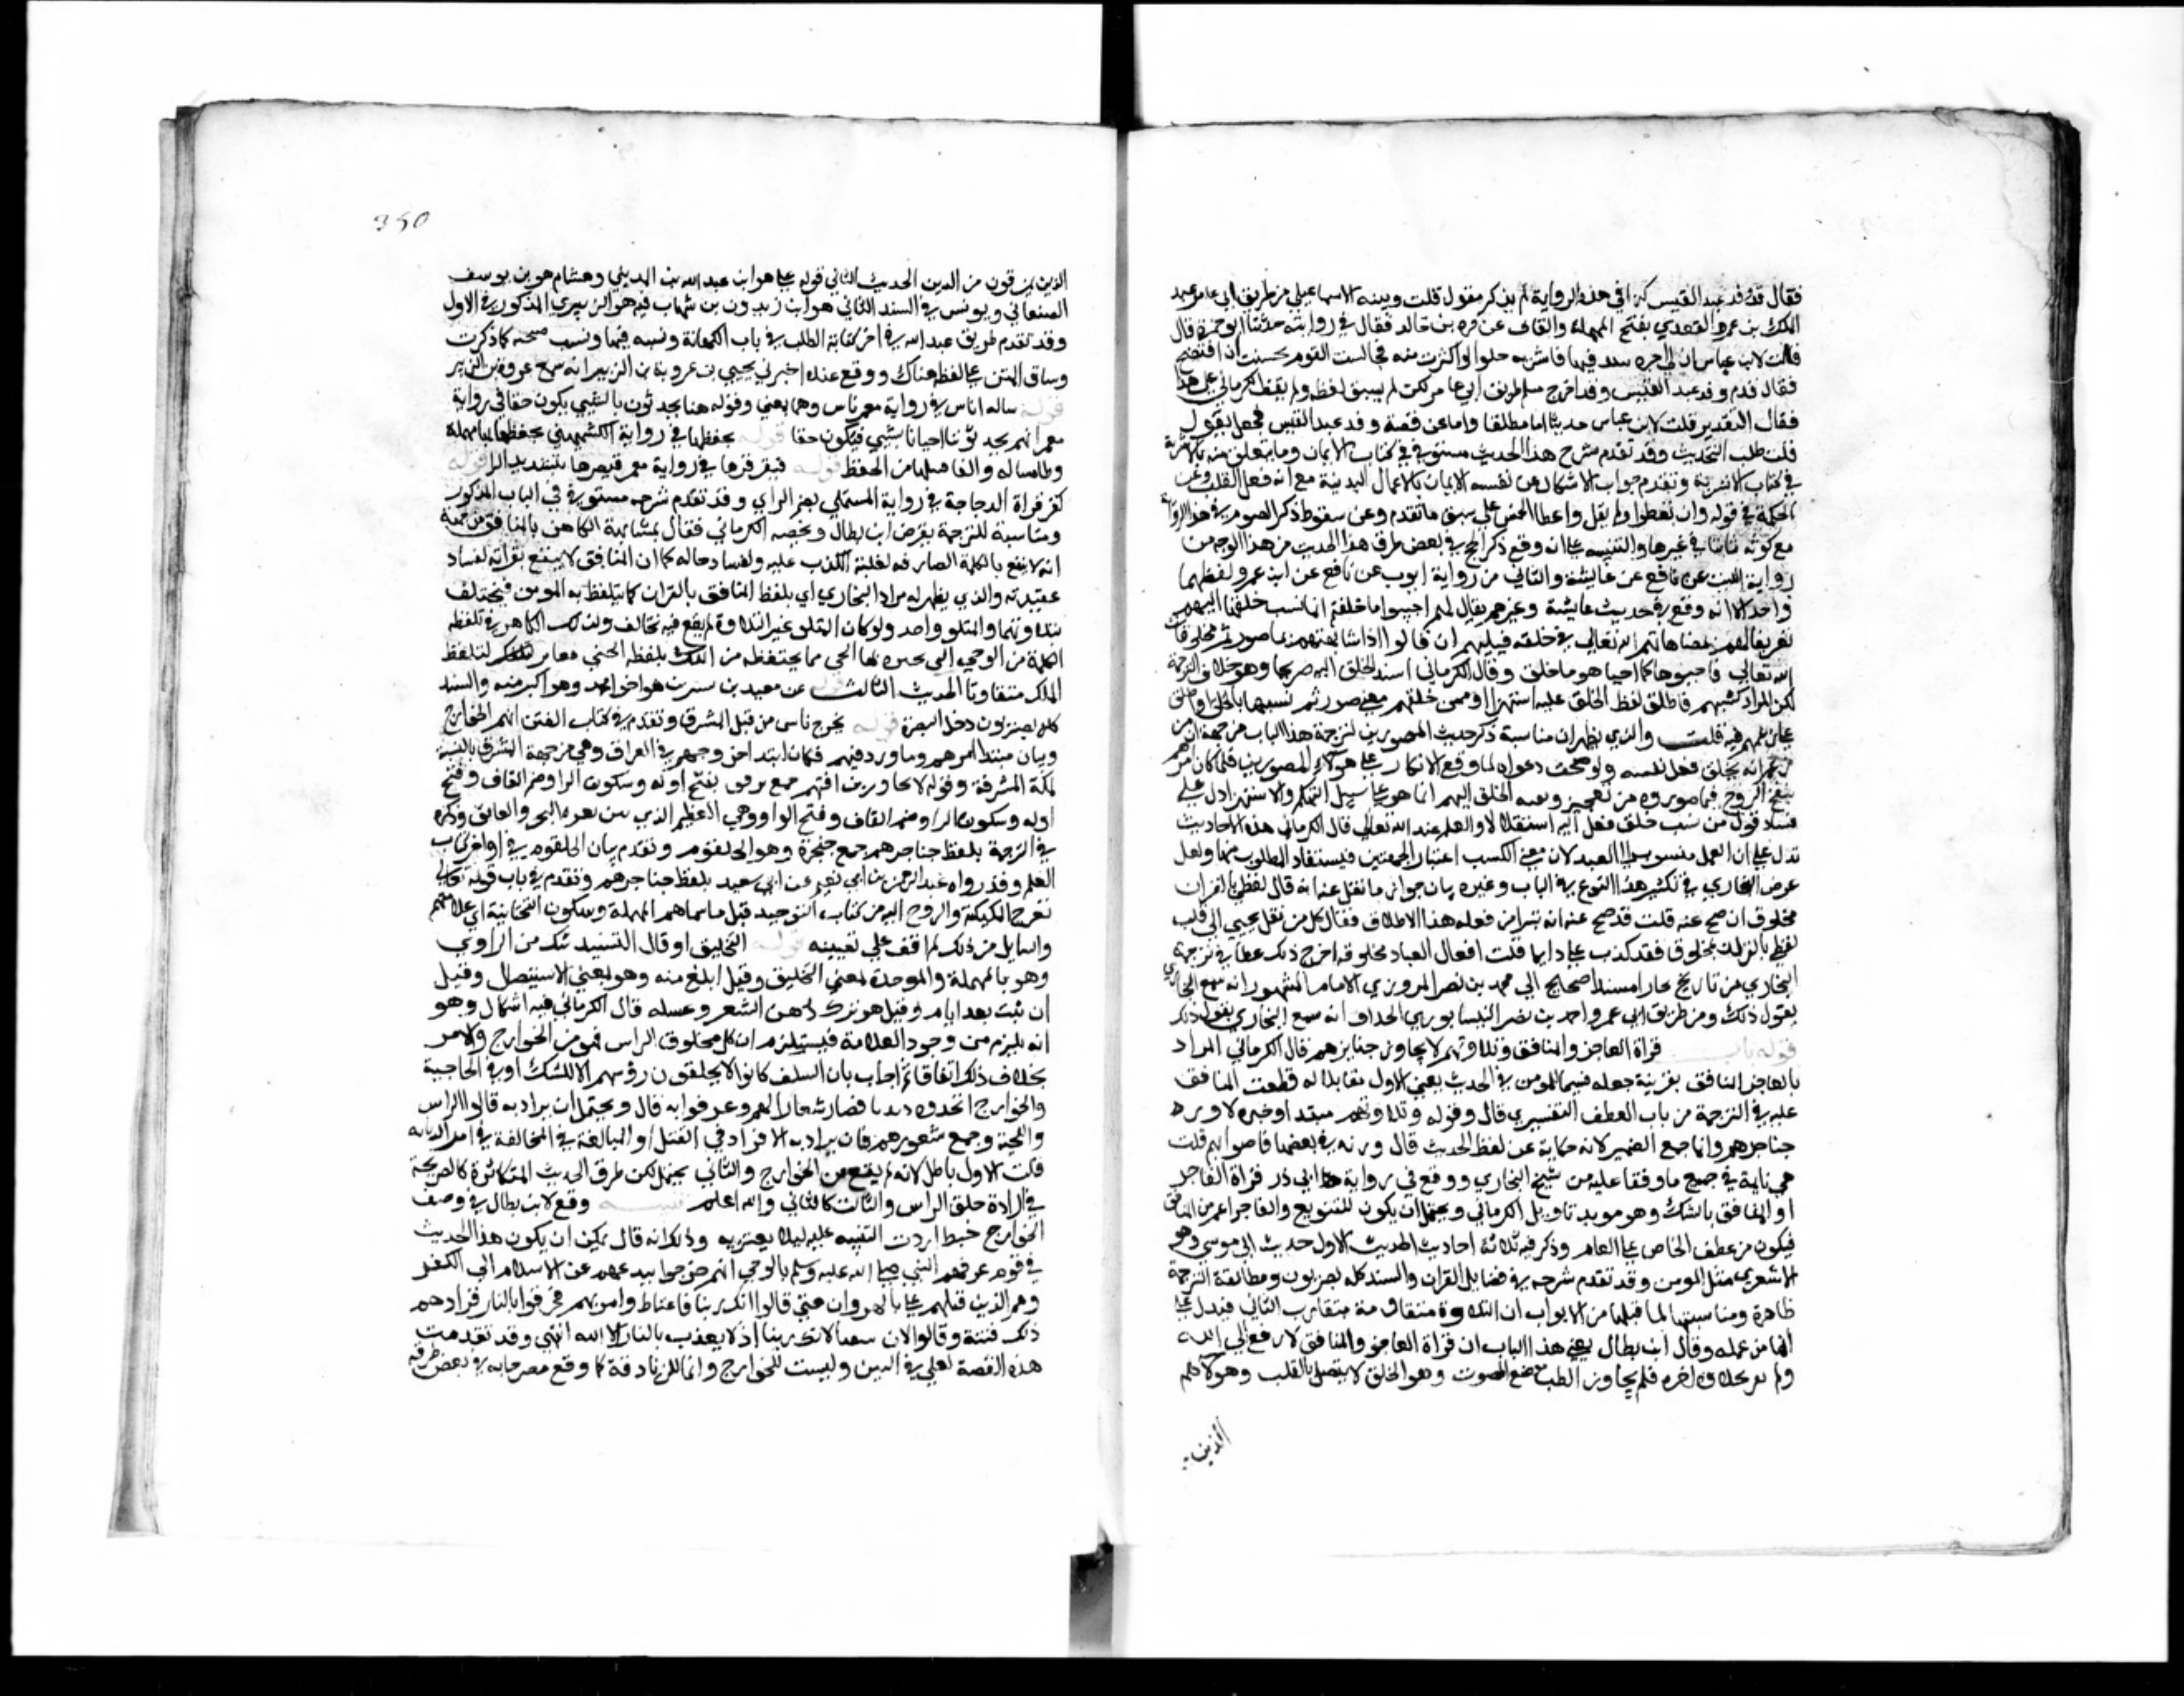 فقال قدم وفد عبد القيس كذا في هذه الرواية لم يذكر مقول قلت وبينه الاسماعيلي من طريق ابي عامر عبد
الملك بن عمرو العقدي بفتح المهملة والقاف عن قرة بن خالد فقال في روايته حدثنا ابو جمرة قال
قلت لابن عباس ان لي جرة فيها فاشربه حلوا لو اكثرت منه فجالست القوم لخشيت ان افتضح
فقال قدم وفد عبد القيس وقد اخرج مسلم طريق ابي عامر لكن لم يسبق لفظه ولم يقف الكرماني على هذا
فقال التقدير قلت لابن عباس حدثنا اما مطلقا واما عن قصة وفد عبد القيس فجعل يقول
قلت طلب التحديث وقد تقدم شرح هذا الحديث مستوفى في كتاب الايمان وما يتعلق منه بالاشربة
في كتاب الاشربة وتقدم جواب الاشكال عن تفسير الايمان بالاعمال البدنية مع انه فعل القلب وعن
الحكمة في قوله وان تعطوا ولم يقل واعطا الخمس على سبق ما تقدم وعن سقوط ذكر الصوم في هذه الرواية
مع كونه ثابتا في غيرها والتنبيه على انه وقع ذكر الحج في بعض طرق هذا الحديث من هذا الوجه من
رواية الليث عن نافع عن عايشة والثاني من رواية ايوب عن نافع عن ابن عمر ولفظهما
واحد الا انه وقع في حديث عايشة وغيرهم يقال لهم احيوا ما خلقتم انما نسب خلقها اليهم
تقريعا لهم بمضاهاتهم الله تعالى في خلقه فبكتهم ان قالوا اذا شابهتهم بما صورتم مخلوقات
الله تعالى فاحيوها كما احيا هو ما خلق وقال الكرماني اسند الخلق اليهم صريحا وهو خلاف الترجمة
لكن المراد كسبهم فاطلق لفظ الخلق عليه استهزا او ضمن خلقتم معنى صورتم تشبيها بالخلق او اطلق
على زعمهم فيه قلت والذي يظهر ان مناسبة ذكر حديث المصورين لترجمة هذا الباب من جهة ان من
زعم انه يخلق فعل نفسه ولو صحت دعواه لما وقع الانكار على هولاء المصورين فلما كان امرهم
بنفخ الروح فيما صوروه من تعجيز ونسبة الخلق اليهم انما هو على سبيل التهكم والاستهزا دل على
فساد قول من نسب خلق فعل اليه استقلالا والعلم عند الله تعالى قال الكرماني هذه الاحاديث
تدل على ان العمل منسوب الى العبد لان معنى الكسب اعتبار الجهتين فيستفاد المطلوب منها ولعل
غرض البخاري في تكثير هذا النوع في الباب وغيره بيان جواز ما نقل عنه انه قال لفظي بالقران
مخلوق ان صح عنه قلت قد صح عنه انه تبرا من هذا الاطلاق فقال كل من نقل عني اني قلت
لفظي بالقران مخلوق فقد كذب علي وانما قلت افعال العباد مخلوقة اخرج ذلك غنجار في ترجمة
البخاري من تاريخ بخارا بسند صحيح الى محمد بن نصر المروزي الامام المشهور انه سمع البخاري
يقول ذلك ومن طريق ابي عمرو احمد بن نصر النيسابوري الخفاف انه سمع البخاري يقول ذلك
قوله باب قراة الفاجر والمنافق وتلاوتهم لا يجاوز حناجرهم قال الكرماني المراد
بالفاجر المنافق بقرينة جعله قسيما للمومن في الحديث يعني الاول مقابلا له فعطف المنافق
عليه في الترجمة من باب العطف التفسيري قال وقوله وتلاوتهم مبتدا وخبره لا يجاوز
حناجرهم وانما جمع الضمير لانه حكاية عن لفظ الحديث قال وزيد في بعضها واصواتهم قلت
هي ثابتة في جميع ما وقفنا عليه من نسخ البخاري ووقع في رواية ابي ذر قراة الفاجر
او المنافق بالشك وهو مويد تاويل الكرماني ويحتمل ان يكون للتنويع والفاجر اعم من المنافق
فيكون من عطف الخاص على العام وذكر فيه ثلاثة احاديث الحديث الاول حديث ابي موسى وهو
الاشعري مثل المومن وقد تقدم شرحه في فضايل القران والسند كله بصريون ومطابقة الترجمة
ظاهرة ومناسبتها لما قبلها من الابواب ان التلاوة متفاوتة بتفاوت التالي فيدل على
انها من عمله وقال ابن بطال معنى هذا الباب ان قراة الفاجر والمنافق لا ترفع الى الله
ولا تزكو فلم يجاوز الطبع مع الصوت وهو الحلق لا يتصل بالقلب وهولاء هم
الذين
350
الذين يمرقون من الدين الحديث الثاني قوله علي هو ابن عبد الله بن المديني وهشام هو بن يوسف
الصنعاني ويونس في السند الثاني هو ابن يزيد وبن شهاب فيه هو الزهري المذكور في الاول
وقد تقدم طريق علي في اخر كتاب الطب في باب الكهانة ونسبه فيها ونسب شيخه كما ذكرت
وساق المتن على لفظه هناك ووقع عنده اخبرني يحيى بن عروة بن الزبير انه سمع عروة بن الزبير
قوله سال اناس في رواية معمر ناس وهما بمعنى وقوله هنا يحدثون بالشي يكون حقا في رواية
معمر انهم يحدثوننا احيانا بشي فيكون حقا قوله يخطفها في رواية الكشميهني يحفظها بحا مهملة
وظا مشالة والفا قبلها من الحفظ قوله فيقرقرها في رواية معمر فيقرها بتشديد الرا قوله
كقرقرة الدجاجة في رواية المستملي الزجاجة بضم الزاي وقد تقدم شرحه مستوفى في الباب المذكور
ومناسبة للترجمة تعرض ابن بطال ولخصه الكرماني فقال لمشابهة الكاهن بالمنافق من جهة
انه لا ينتفع بالكلمة الصادقة لغلبة الكذب عليه ولفساد حاله كما ان المنافق لا ينتفع بقراته لفساد
عقيدته والذي يظهر لي مراد البخاري ان تلفظ المنافق بالقران كما يتلفظ به المومن فتختلف
تلاوتهما والمتلو واحد ولو كان المتلو عين التلاوة لم يقع فيه تخالف وكذلك الكاهن في تلفظه
الكلمة من الوحي التي يخبره بها الجني مما يختطفه من الملك تلفظه الجني مغاير لتلفظ
الملك متفاوتا الحديث الثالث قوله عن معبد بن سيرين هو اخو محمد وهو اكبر منه والسند
كله بصريون دخل البصرة قوله يخرج ناس من قبل المشرق وتقدم في كتاب الفتن انهم الخوارج
وبيان مبتدا امرهم وما ورد فيهم فكان ابتدا خروجهم في العراق وهي من جهة المشرق بالنسبة
لمكة المشرفة وقوله لا يجاوز تراقيهم جمع ترقوة بفتح اوله وسكون الرا وضم القاف وفتح
اوله وسكون الرا وضم القاف وفتح الواو وهي العظم الذي بين نقرة النحر والعاتق وذكره
في الترجمة بلفظ حناجرهم جمع حنجرة وهو الحلقوم وتقدم بيان الحلقوم في اواخر كتاب
العلم وقد رواه عبد الرحمن بن ابي نعم عن ابي سعيد بلفظ حناجرهم وتقدم في باب قوله تعالى
تعرج الملايكة والروح اليه من كتاب التوحيد قيل ما سيماهم بالمهملة وسكون التحتانية اي علامتهم
والسايل من ذلك لم اقف على تعيينه قوله التحليق او قال التسبيد شك من الراوي
وهو بالمهملة والموحدة بمعنى التحليق وقيل ابلغ منه وهو بمعنى الاستيصال وقيل
ان نبت بعد ايام وقيل هو ترك دهن الشعر وغسله قال الكرماني فيه اشكال وهو
انه يلزم من وجود العلامة فيستلزم ان كل محلوق الراس فهو من الخوارج والامر
بخلاف ذلك اتفاقا ثم اجاب بان السلف كانوا لا يحلقون رؤسهم الا للنسك او في الحاجة
والخوارج اتخذوه ديدنا فصار شعارا لهم وعرفوا به قال ويحتمل ان يراد به قالوا الراس
واللحية وجمع شعورهم وان يراد به الافراد في القتل او المبالغة في المخالفة في امر الديانة
قلت الاول باطل لانه لم يقع من الخوارج والثاني يحتمل لكن طرق الحديث المتكاثرة كالصريحة
في ارادة حلق الراس والثالث كالثاني والله اعلم تنبيه وقع لابن بطال في وصف
الخوارج خبط اردت التنبيه عليه ليلا يغتر به وذلك انه قال يمكن ان يكون هذا الحديث
في قوم عرفهم النبي صلى الله عليه وسلم بالوحي انهم خرجوا ببدعتهم عن الاسلام الى الكفر
وهم الذين قتلهم علي بالنهروان حتى قالوا انك ربنا فاغتاظ وامر بهم فحرقوا بالنار فزادهم
ذلك فتنة وقالوا الان تيقنا انك ربنا اذ لا يعذب بالنار الا الله انتهى وقد تقدمت
هذه القصة لعلي في الفتن وليست للخوارج وانما للزنادقة كما وقع مصرحا به في بعض طرقه